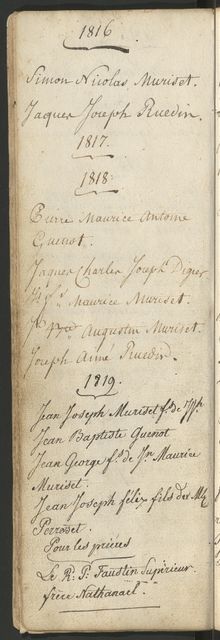 1816
Simon Nicolas Muriset.
Jaques Joseph Ruedin.
1817.
1818.
Pierre Maurice Antoine
Guenot.
Jaques Charles Joseph Diger
Maurice Muriset.
Augustin Muriset.
Joseph Aimé Ruedin.
1819.
Jean Joseph Muriset f.s de
Jean Baptiste Guenot
Jean George f.s de Jn Maurice
Muriset.
Jean Joseph félix fils de
Perroset.
Pour les prières
Le R. P. Faustin Supérieur.
frère Nathanael.